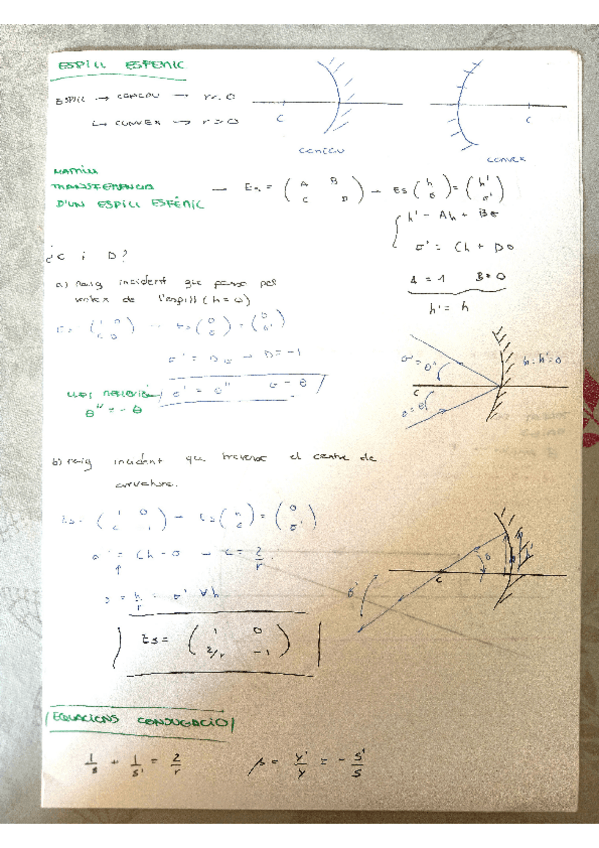 ESPILL ESFERIC
ESPILL → CONCAU → r<0
↳ CONVEX → r>0
C
CONCAU
C
CONVEX
MATRIU
TRANSFERENCIA
D'UN ESPILL ESFÈRIC
→ Es = ( A B
C D ) → Es ( h
σ ) = ( h'
σ' )
h' = Ah + Bσ
σ' = Ch + Dσ
¿C i D?
A = 1 B = 0
h' = h
a) raig incident que passa pel
vertex de l'espill (h = 0)
σ' = Dσ → D = -1
LLEI REFLEXIÓ
θ'' = - θ
σ' = θ'' σ = θ
C
h = h' = 0
b) raig incident que travessa el centre de
curvatura.
σ' = Ch - σ → C = 2/r
σ = h/r = σ' ∀h
C
Es = ( 1 0
2/r -1 )
EQUACIONS CONJUGACIO
1/s + 1/s' = 2/r
β = y'/y = - s'/s